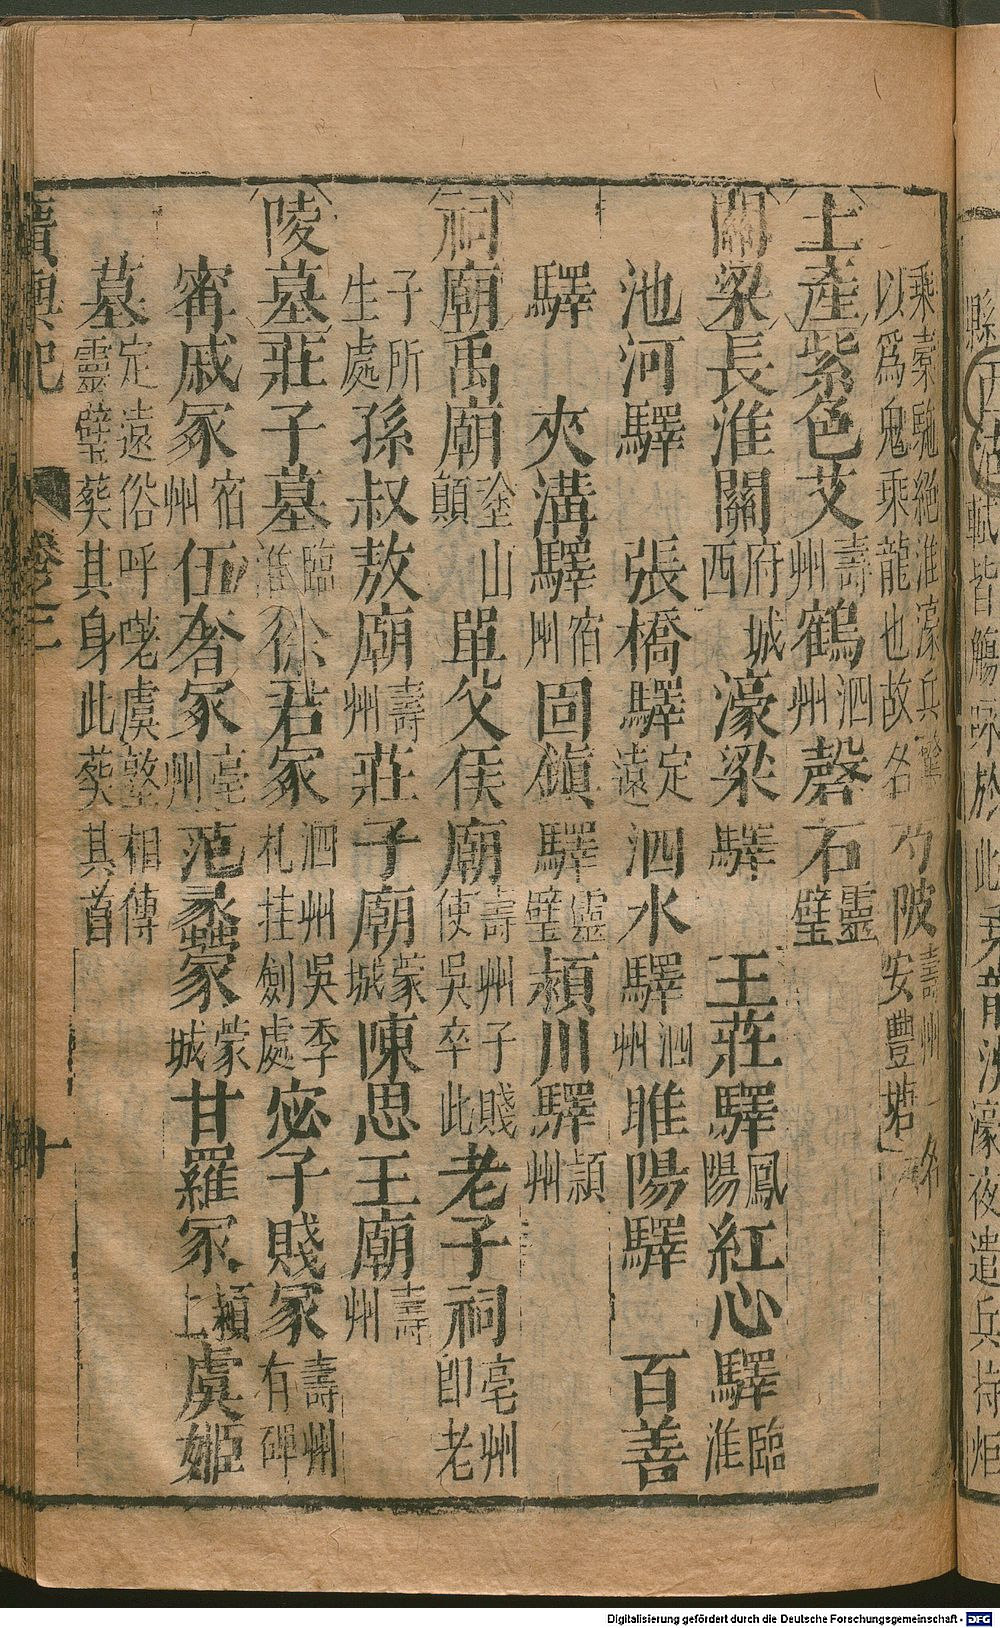 縣
軾皆觴咏於此
龍洲濠夜遣兵持炬
乘橐駞絶淮濠兵驚
以爲鬼乘龍也故名
芍陂壽州一名安豐塘
土產紫色艾壽州鶴泗州磬石靈璧
關梁長淮關府城西濠梁驛　王莊驛鳳陽紅心驛臨淮
池河驛　張橋驛定遠泗水驛泗州睢陽驛　百善
驛　夾溝驛宿州固鎮驛靈璧潁川驛潁州
祠廟禹廟塗山顛單父侯廟壽州子賤使吳卒此老子祠亳州即老
子所生處孫叔敖廟壽州莊子廟蒙城陳思王廟壽州
陵墓莊子墓臨淮徐君冢泗州吳季札挂劍處宓子賤冢壽州有碑
甯戚冢宿州伍奢冢亳州范蠡冢蒙城甘羅冢潁上虞姬
墓定遠俗呼嗟虞墩相傳靈璧葬其身此葬其首
廣輿記
卷之二
十
Digitalisierung gefördert durch die Deutsche Forschungsgemeinschaft - DFG